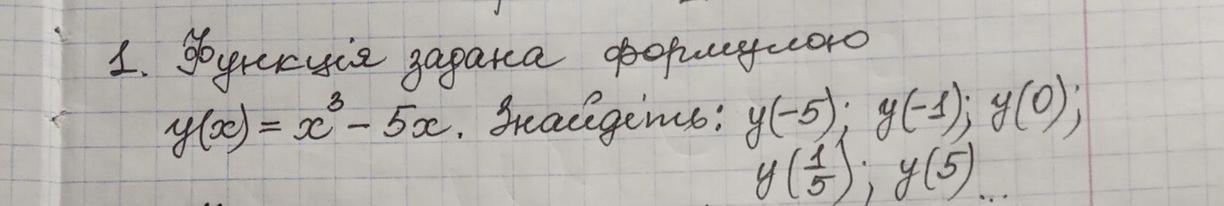 1. Функція задана формулою
y(x) = x³ - 5x. Знайдіть: y(-5); y(-1); y(0);
y(1/5); y(5)...